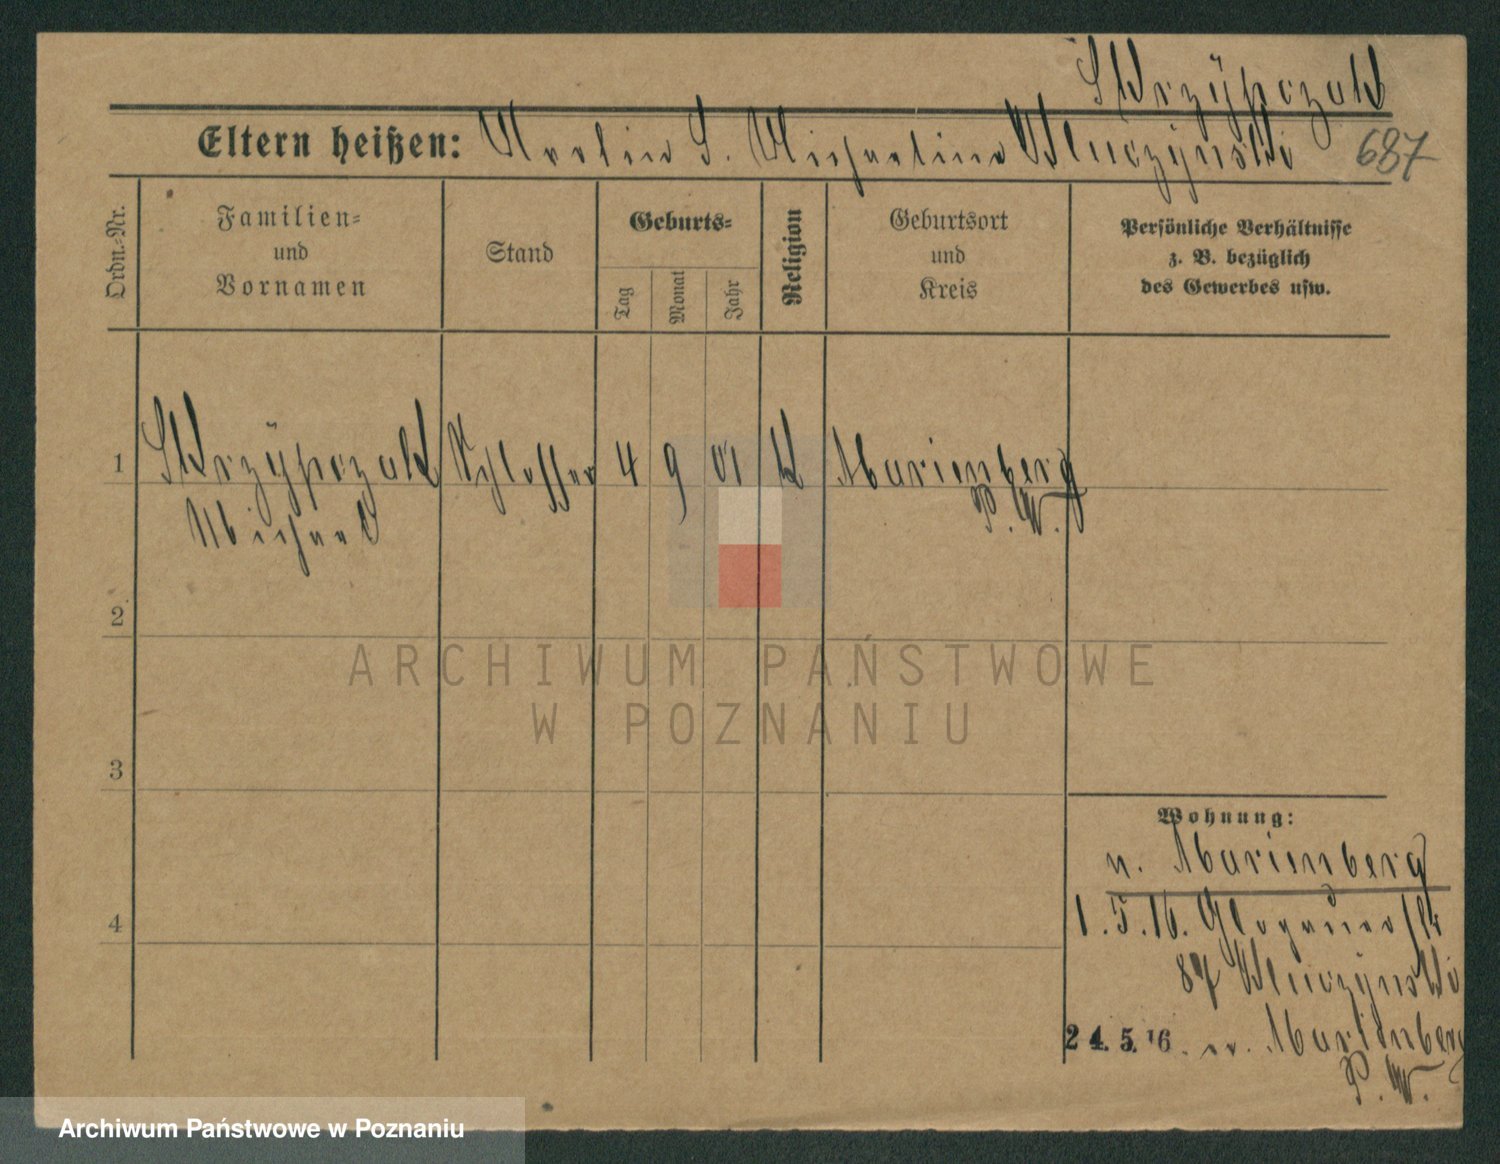 Skrzypczak
Eltern heißen: Martin S. Michaelina
687
Ordn.-Nr.
Familien-
und
Vornamen
Stand
Geburts-
Tag
Monat
Jahr
Religion
Geburtsort
und
Kreis
Persönliche Verhältnisse
z. B. bezüglich
des Gewerbes usw.
1 Skrzypczak Schlosser 4 9 01 k Marienberg
Michael P. W.
2
3
4
Wohnung:
n. Marienberg
1.5.16. Glogauerstr
87
24.5.16. n. Marienberg
P. W.
ARCHIWUM PAŃSTWOWE
W POZNANIU
Archiwum Państwowe w Poznaniu